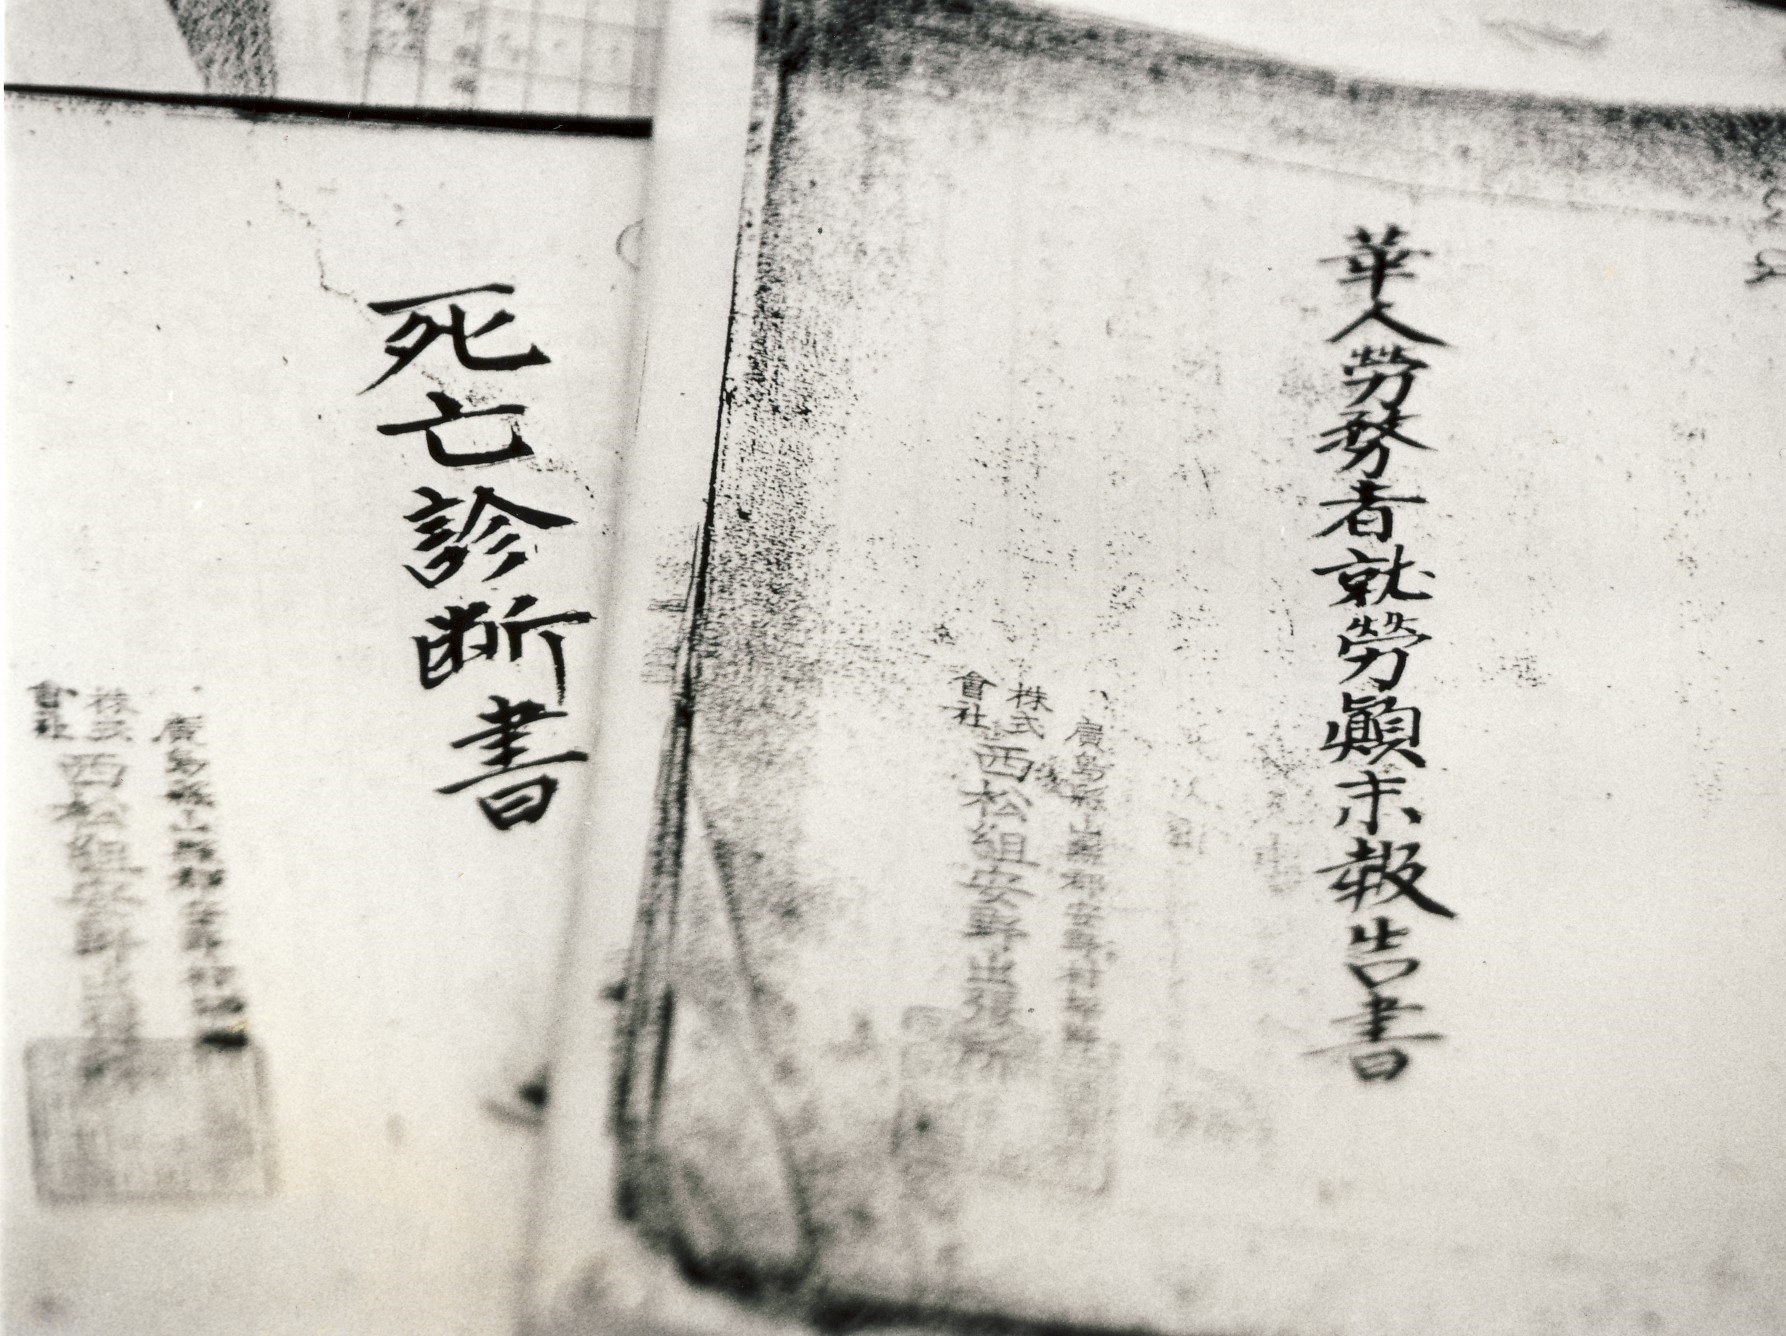 華人勞務者就勞顚末報告書
廣島縣山縣郡安野村
株式會社西松組安野出張所
死亡診断書
廣島縣山縣郡安野村
株式會社西松組安野出張所